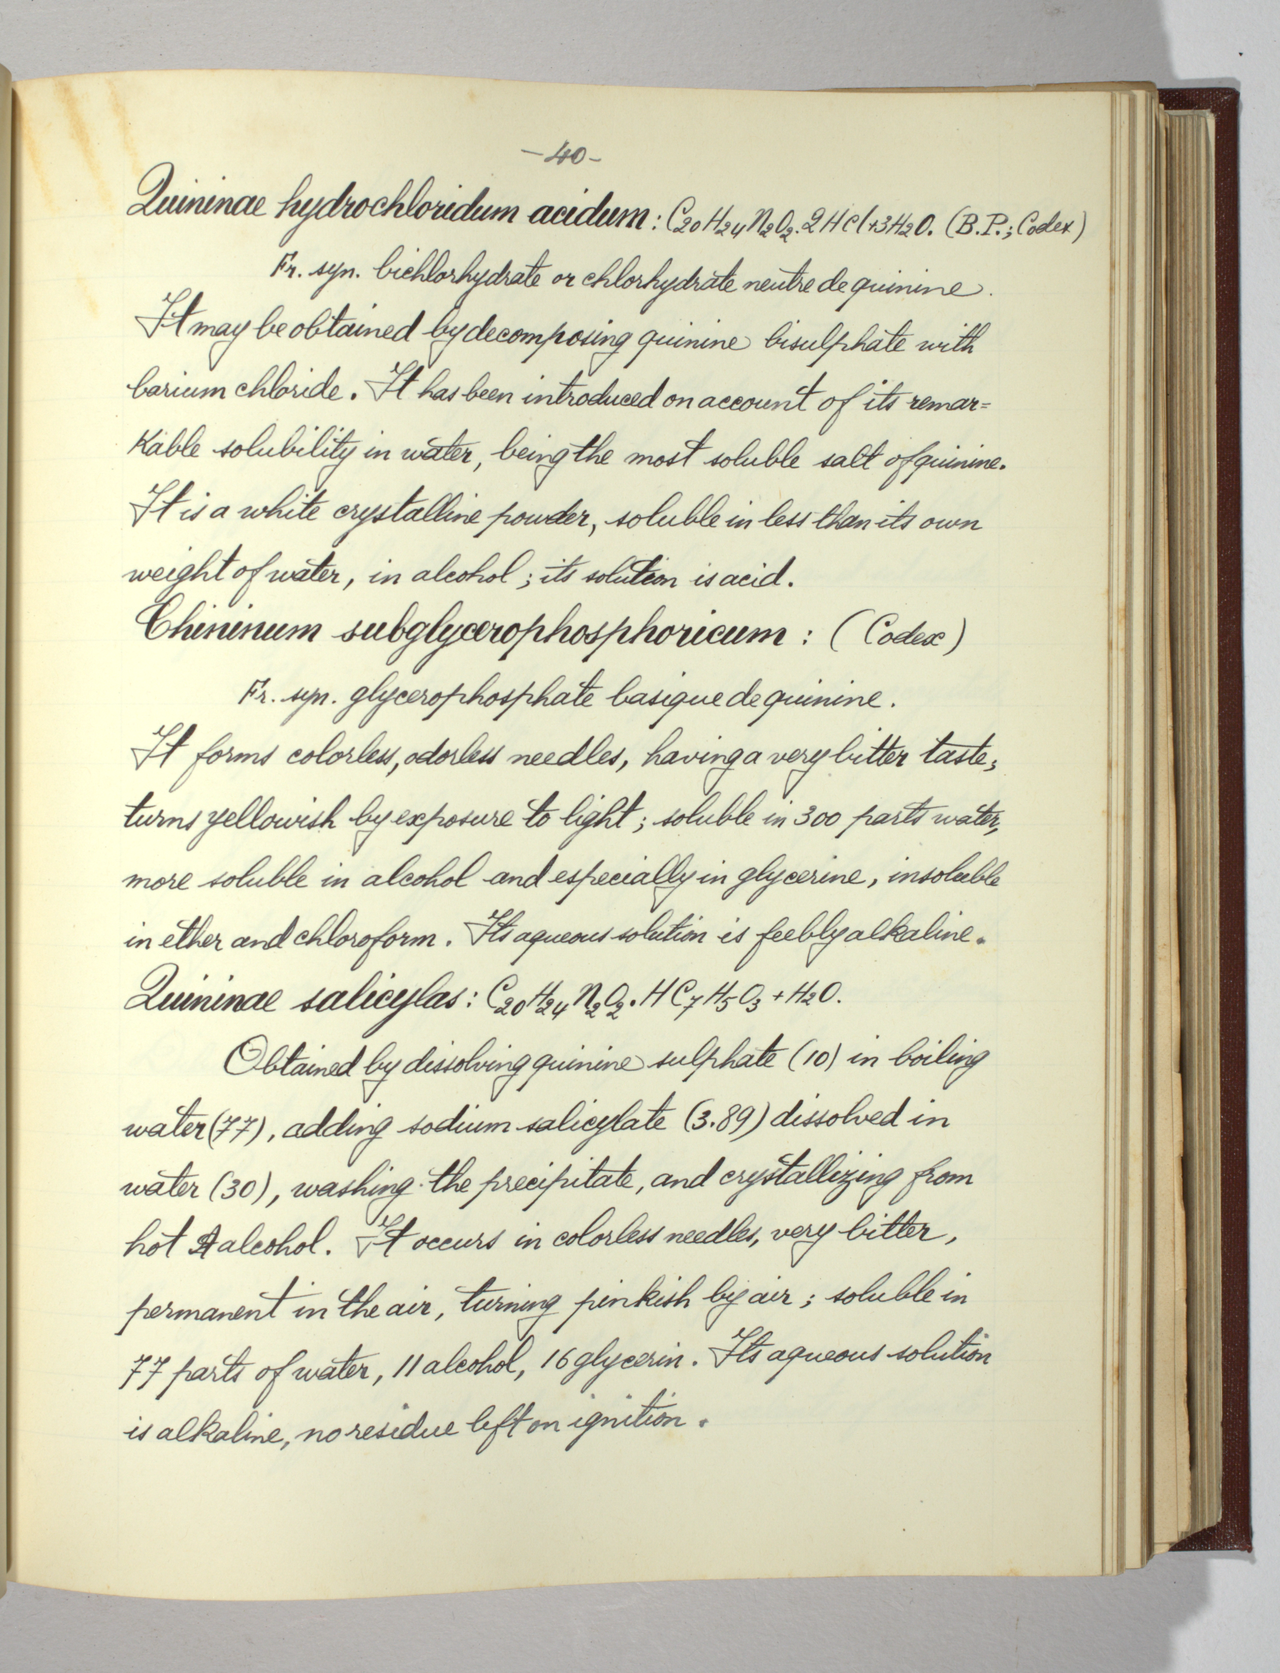 -40-
Quininae hydrochloridum acidum: C20H24N2O2.2HCl+3H2O. (B.P.; Codex)
Fr. syn. bichlorhydrate or chlorhydrate neutre de quinine.
It may be obtained by decomposing quinine bisulphate with
barium chloride. It has been introduced on account of its remar=
kable solubility in water, being the most soluble salt of quinine.
It is a white crystalline powder, soluble in less than its own
weight of water, in alcohol; its solution is acid.
Chininum subglycerophosphoricum: (Codex)
Fr. syn. glycerophosphate basique de quinine.
It forms colorless, odorless needles, having a very bitter taste;
turns yellowish by exposure to light; soluble in 300 parts water,
more soluble in alcohol and especially in glycerine, insoluble
in ether and chloroform. Its aqueous solution is feebly alkaline.
Quininae salicylas: C20H24N2O2.HC7H5O3+H2O.
Obtained by dissolving quinine sulphate (10) in boiling
water (77), adding sodium salicylate (3.89) dissolved in
water (30), washing the precipitate, and crystallizing from
hot alcohol. It occurs in colorless needles, very bitter,
permanent in the air, turning pinkish by air; soluble in
77 parts of water, 11 alcohol, 16 glycerin. Its aqueous solution
is alkaline, no residue left on ignition.